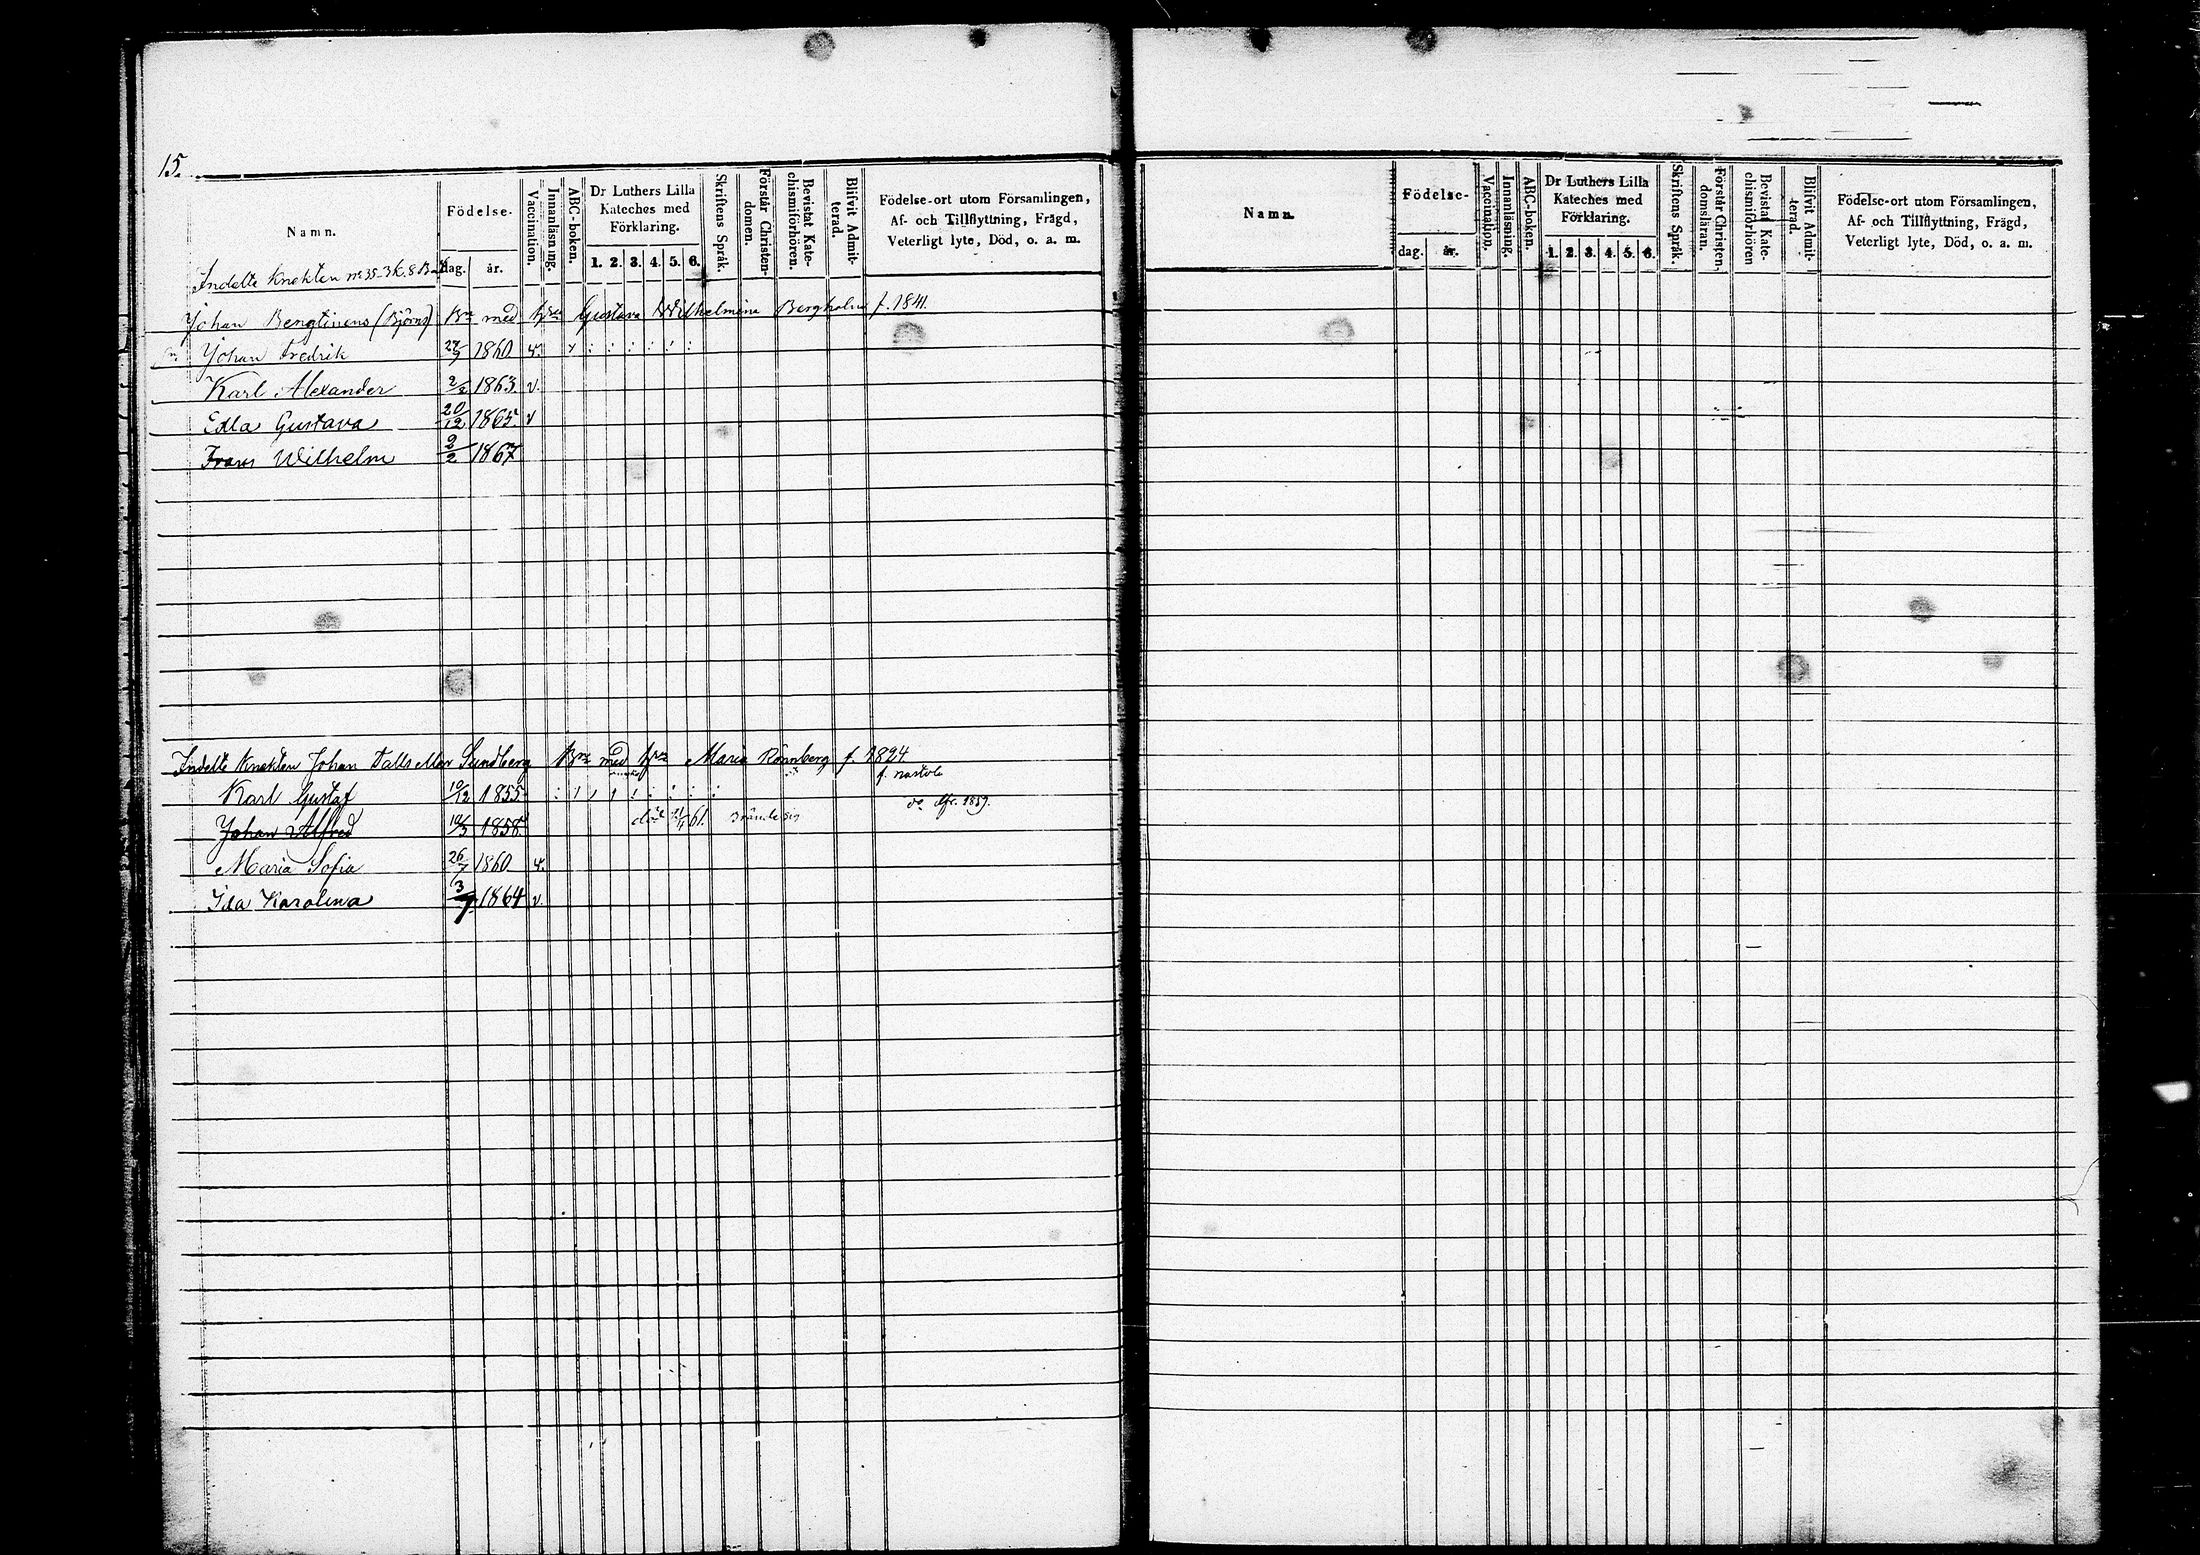 15.
Namn.
Födelse-
dag.
år.
Vaccination.
Innanläsning.
ABC-boken.
Dr Luthers Lilla
Kateches med
Förklaring.
1. 2. 3. 4. 5. 6.
Skriftens Språk.
Förstår Christen-
domen.
Bevistat Kate-
chismiförhören.
Blifvit Admit-
terad.
Födelse-ort utom Församlingen,
Af- och Tillflyttning, Frägd,
Veterligt lyte, Död, o. a. m.
Indelte Knekten no 35 - 3 K. 8 B
Johan Bengtinens (Björns) Bn med hru Gustava Wilhelmina Bergholm f. 1841.
Johan Fredrik 1860 v.
Karl Alexander 1863 v.
Edla Gustava 20/12 1865 v
Frans Wilhelm 2/2 1867
Indelte Knekten Johan Sundberg Bn med hru Maria Rönnberg f. 1824
f. nastola
Karl Gustaf 10/12 1855
do 1859.
Johan Alfred 1858 död 61. Brände sig
Maria Sofia 26/7 1860 v.
Ida Karolina 3/7 1864 v.
Namn.
Födelse-
dag.
år.
Vaccination.
Innanläsning.
ABC-boken.
Dr Luthers Lilla
Kateches med
Förklaring.
1. 2. 3. 4. 5. 6.
Skriftens Språk.
Förstår Christen-
domsläran.
Bevistat Kate-
chismiförhören
Blifvit Admit-
terad.
Födelse-ort utom Församlingen,
Af- och Tillflyttning, Frägd,
Veterligt lyte, Död, o. a. m.